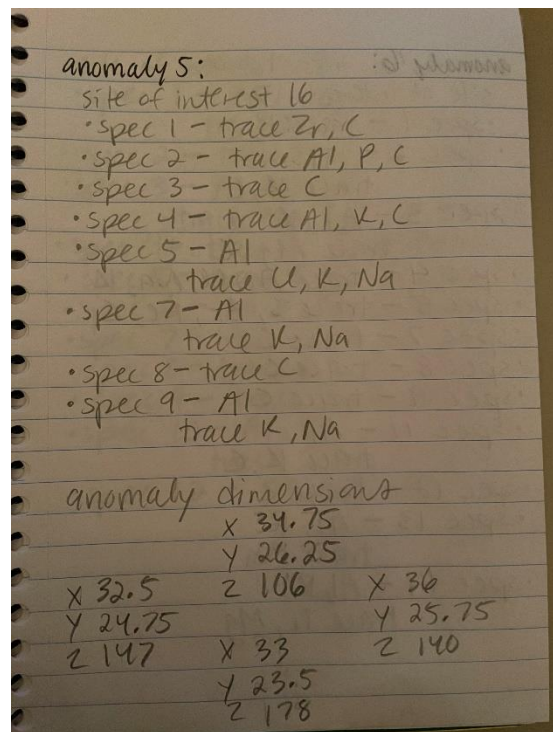 anomaly 5:
site of interest 16
• spec 1 - trace Zr, C
• spec 2 - trace Al, P, C
• spec 3 - trace C
• spec 4 - trace Al, K, C
• spec 5 - Al
trace U, K, Na
• spec 7 - Al
trace K, Na
• spec 8 - trace C
• spec 9 - Al
trace K, Na
anomaly dimensions
X 34.75
Y 26.25
Z 106
X 32.5
Y 24.75
Z 147
X 36
Y 25.75
Z 140
X 33
Y 23.5
Z 178